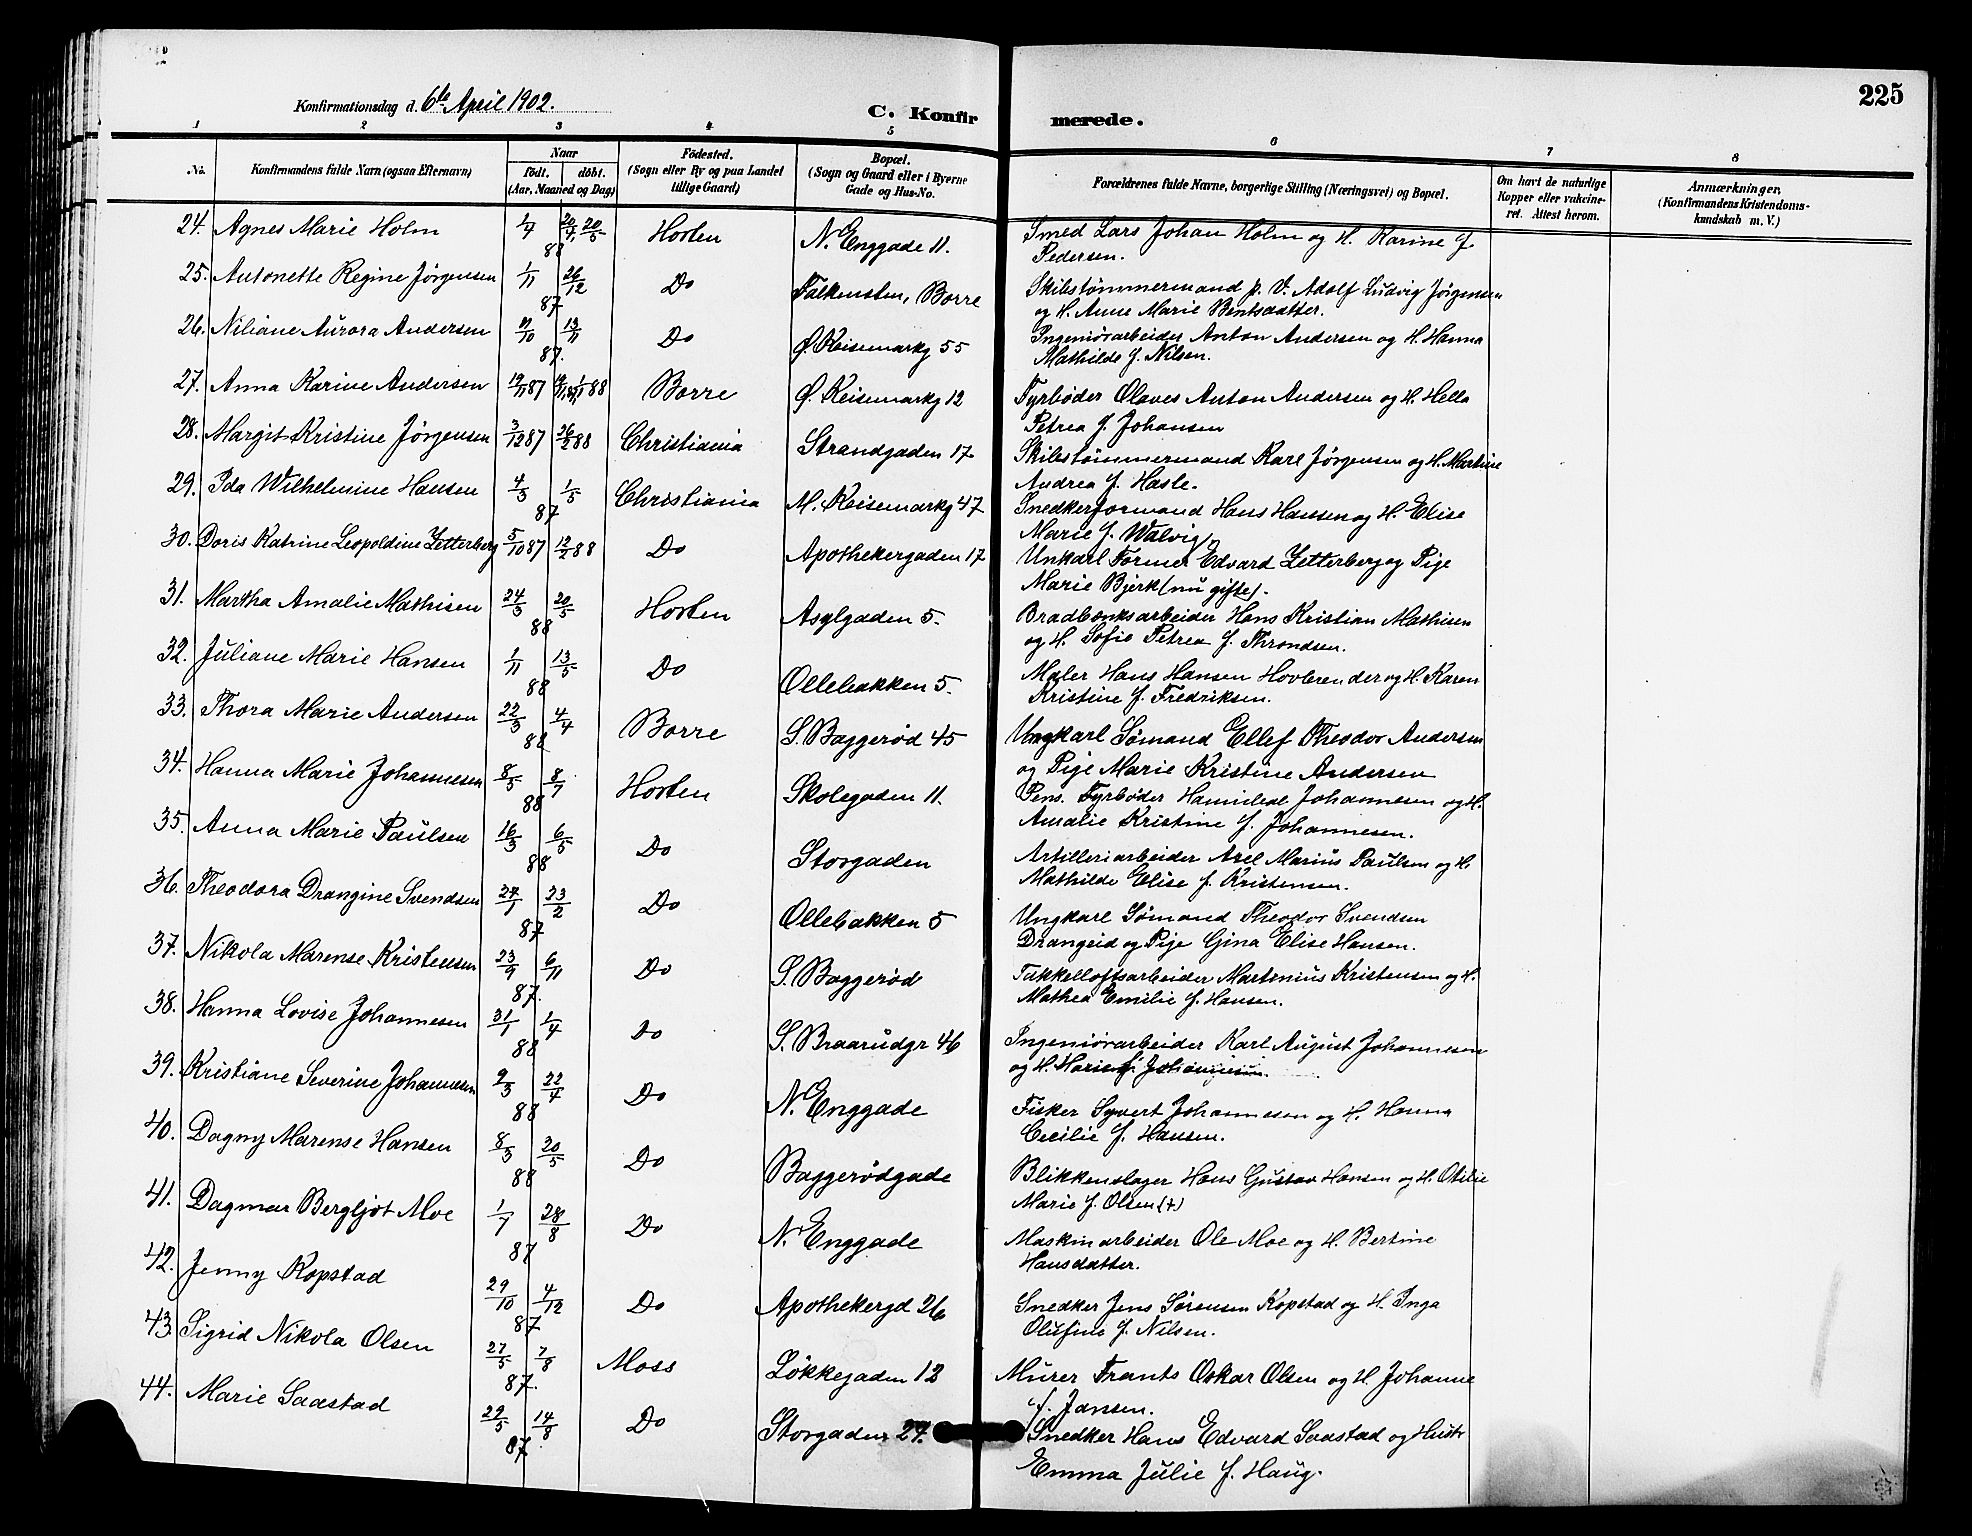 Konfirmationsdag d. 6te April 1902.
C. Konfirmerede.
225
1 2 3 4 5 6 7 8
No. Konfirmandens fulde Navn (ogsaa Efternavn) Naar født. døbt. (Aar, Maaned og Dag) Fødested. (Sogn eller By og paa Landet tillige Gaard) Bopæl. (Sogn og Gaard eller i Byerne Gade og Hus-No. Forældrenes fulde Navne, borgerlige Stilling (Næringsvei) og Bopæl. Om havt de naturlige Kopper eller vakcineret. Attest herom. Anmærkninger. (Konfirmandens Kristendomskundskab m. V.)
24. Agnes Marie Holm 1/7 88 20/5 Horten N. Enggade 11. Smed Lars Johan Holm og H. Karine f.
Pedersen.
25. Antonette Regine Jørgensen 1/11 87 26/12 Do Falkensten, Borre Skibstømmermand p. V. Adolf Ludvig Jørgensen
og H. Anne Marie Bentsdatter.
26. Niliane Aurora Andersen 9/10 87. 13/11 Do Ø. Keisemarkg 55 Ingeniørarbeider Anton Andersen og H. Hanna
Mathilde f. Nilsen.
27. Anna Karine Andersen 12/11 87 1/1 88 Borre Ø. Keisemarkg 12 Fyrbøder Olaves Anton Andersen og H. Hella
Petrea f. Johansen
28. Margit Kristine Jørgensen 3/12 87 26/2 88 Christiania Strandgaden 17 Skibstømmermand Karl Jørgensen og H. Martine
Andrea f. Hasle.
29. Ida Wilhelmine Hansen 4/3 87 1/5 Christiania M. Keisemarkg 47 Snedkerformand Hans Hansen og H. Elise
Marie f. Walvig
30. Doris Katrine Leopoldine Zetterberg 5/10 87 12/2 88 Do Apothekergaden 17 Unkarl Former Edvard Zetterberg og Pige
Marie Bjerk (nu gifte).
31. Martha Amalie Mathisen 24/3 88 20/5 Horten Asylgaden 5. Bradbænksarbeider Hans Kristian Mathisen
og H. Sofie Petrea f. Throndsen.
32. Juliane Marie Hansen 1/11 88 13/5 Do Ollebakken 5. Maler Hans Hansen Hovlerender og H. Karen
Kristine f. Fredriksen.
33. Thora Marie Andersen 22/3 88 4/4 Borre S. Baggerød 45 Ungkarl Sømand Ellef Theodor Andersen
og Pige Marie Kristine Andersen
34. Hanna Marie Johannesen 8/5 88 8/7 Horten Skolegaden 11. Pens. Fyrbøder Johannesen og H.
Amalie Kristine f. Johannesen.
35. Anna Marie Paulsen 16/3 88 6/5 Do Storgaden Artilleriarbeider Axel Marius Paulsen og H.
Mathilde Elise f. Kristensen.
36. Theodora Drangine Svendsen 27/1 87 23/2 Do Ollebakken 5 Ungkarl Sømand Theodor Svendsen
Drangeid og Pige Gina Elise Hansen.
37. Nikola Marense Kristensen 23/9 87. 6/11 Do S. Baggerød Takkelloftsarbeider Martinius Kristensen og H.
Mathea Emilie f. Hansen.
38. Hanna Lovise Johannesen 31/1 88 1/4 Do S. Braarudgr 46 Ingeniørarbeider Karl August Johannesen
og H. Marie f. Johannesen.
39. Kristiane Severine Johannesen 9/3 88 22/4 Do N. Enggade Fisker Syvert Johannesen og H. Hanna
Cecilie f. Hansen.
40. Dagny Marense Hansen 8/3 88 20/5 Do Baggerødgade Blikkenslager Hans Gustav Hansen og H. Otilie
Marie f. Olsen (+)
41. Dagmar Bergljot Moe 1/7 87 28/8 Do N. Enggade Maskinarbeider Ole Moe og H. Bertine
Hansdatter.
42. Jenny Kopstad 29/10 87 4/12 Do Apothekergd 26 Snedker Jens Sørensen Kopstad og H. Inga
Olufine f. Nilsen.
43. Sigrid Nikola Olsen 27/5 87. 7/8 Moss Løkkegaden 12 Murer Frants Oskar Olsen og H Johanne
f. Jansen.
44. Marie Saastad 29/5 87. 14/8 Do Storgaden 27. Snedker Hans Edvard Saastad og Hustr
Emma Julie f. Haug.